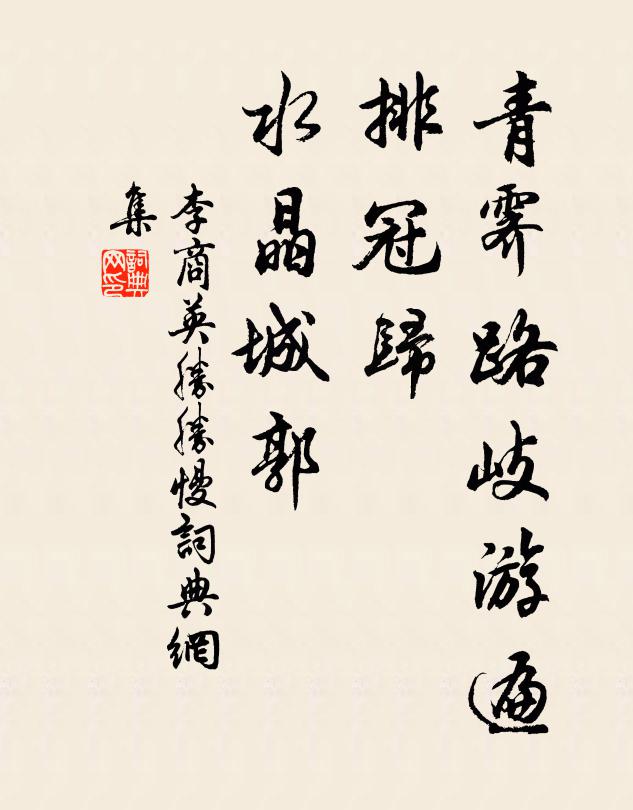 青霽路岐游遍
排冠歸
水晶城郭
李商英勝勝慢詞典網
集
詞典網印